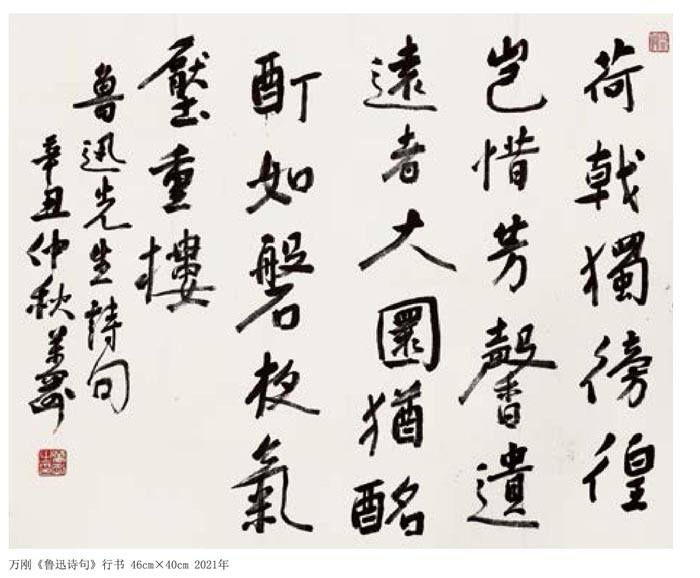 荷戟獨徬徨
岂惜芳馨遺
遠者大圜猶酩
酊如磐夜氣
壓重樓
魯迅先生詩句
辛丑仲秋萬剛
万刚《鲁迅诗句》行书 46cm×40cm 2021年